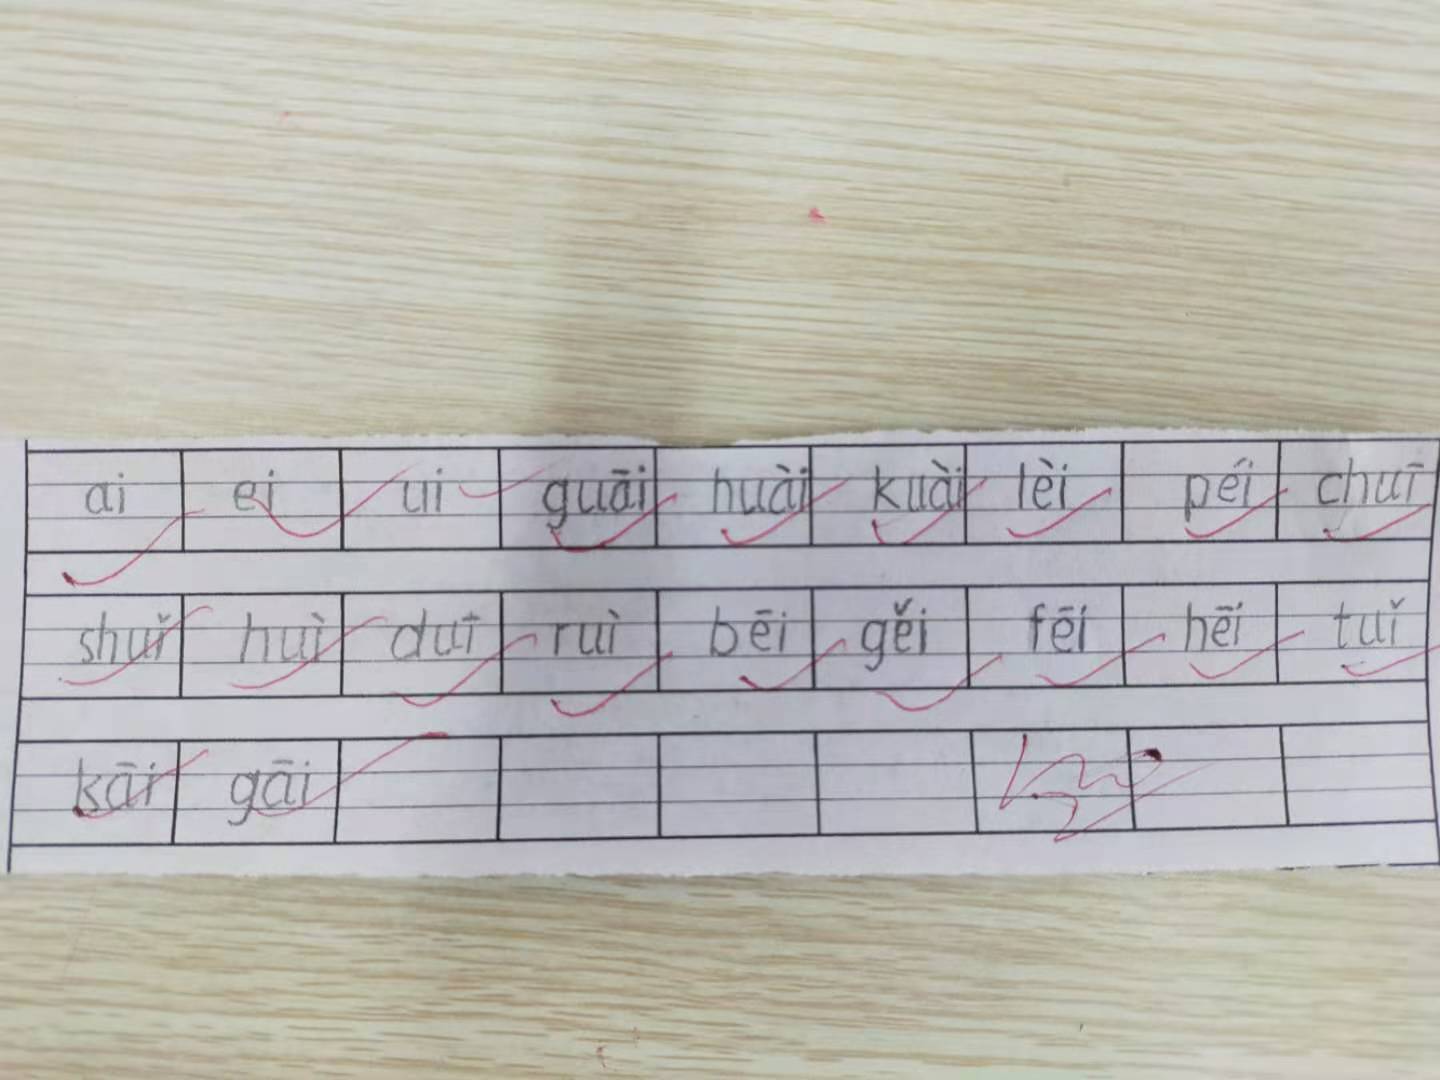 ai ei ui guāi huài kuài lèi péi chuī
shuǐ huì duī ruì bēi gěi fēi hēi tuǐ
kāi gāi